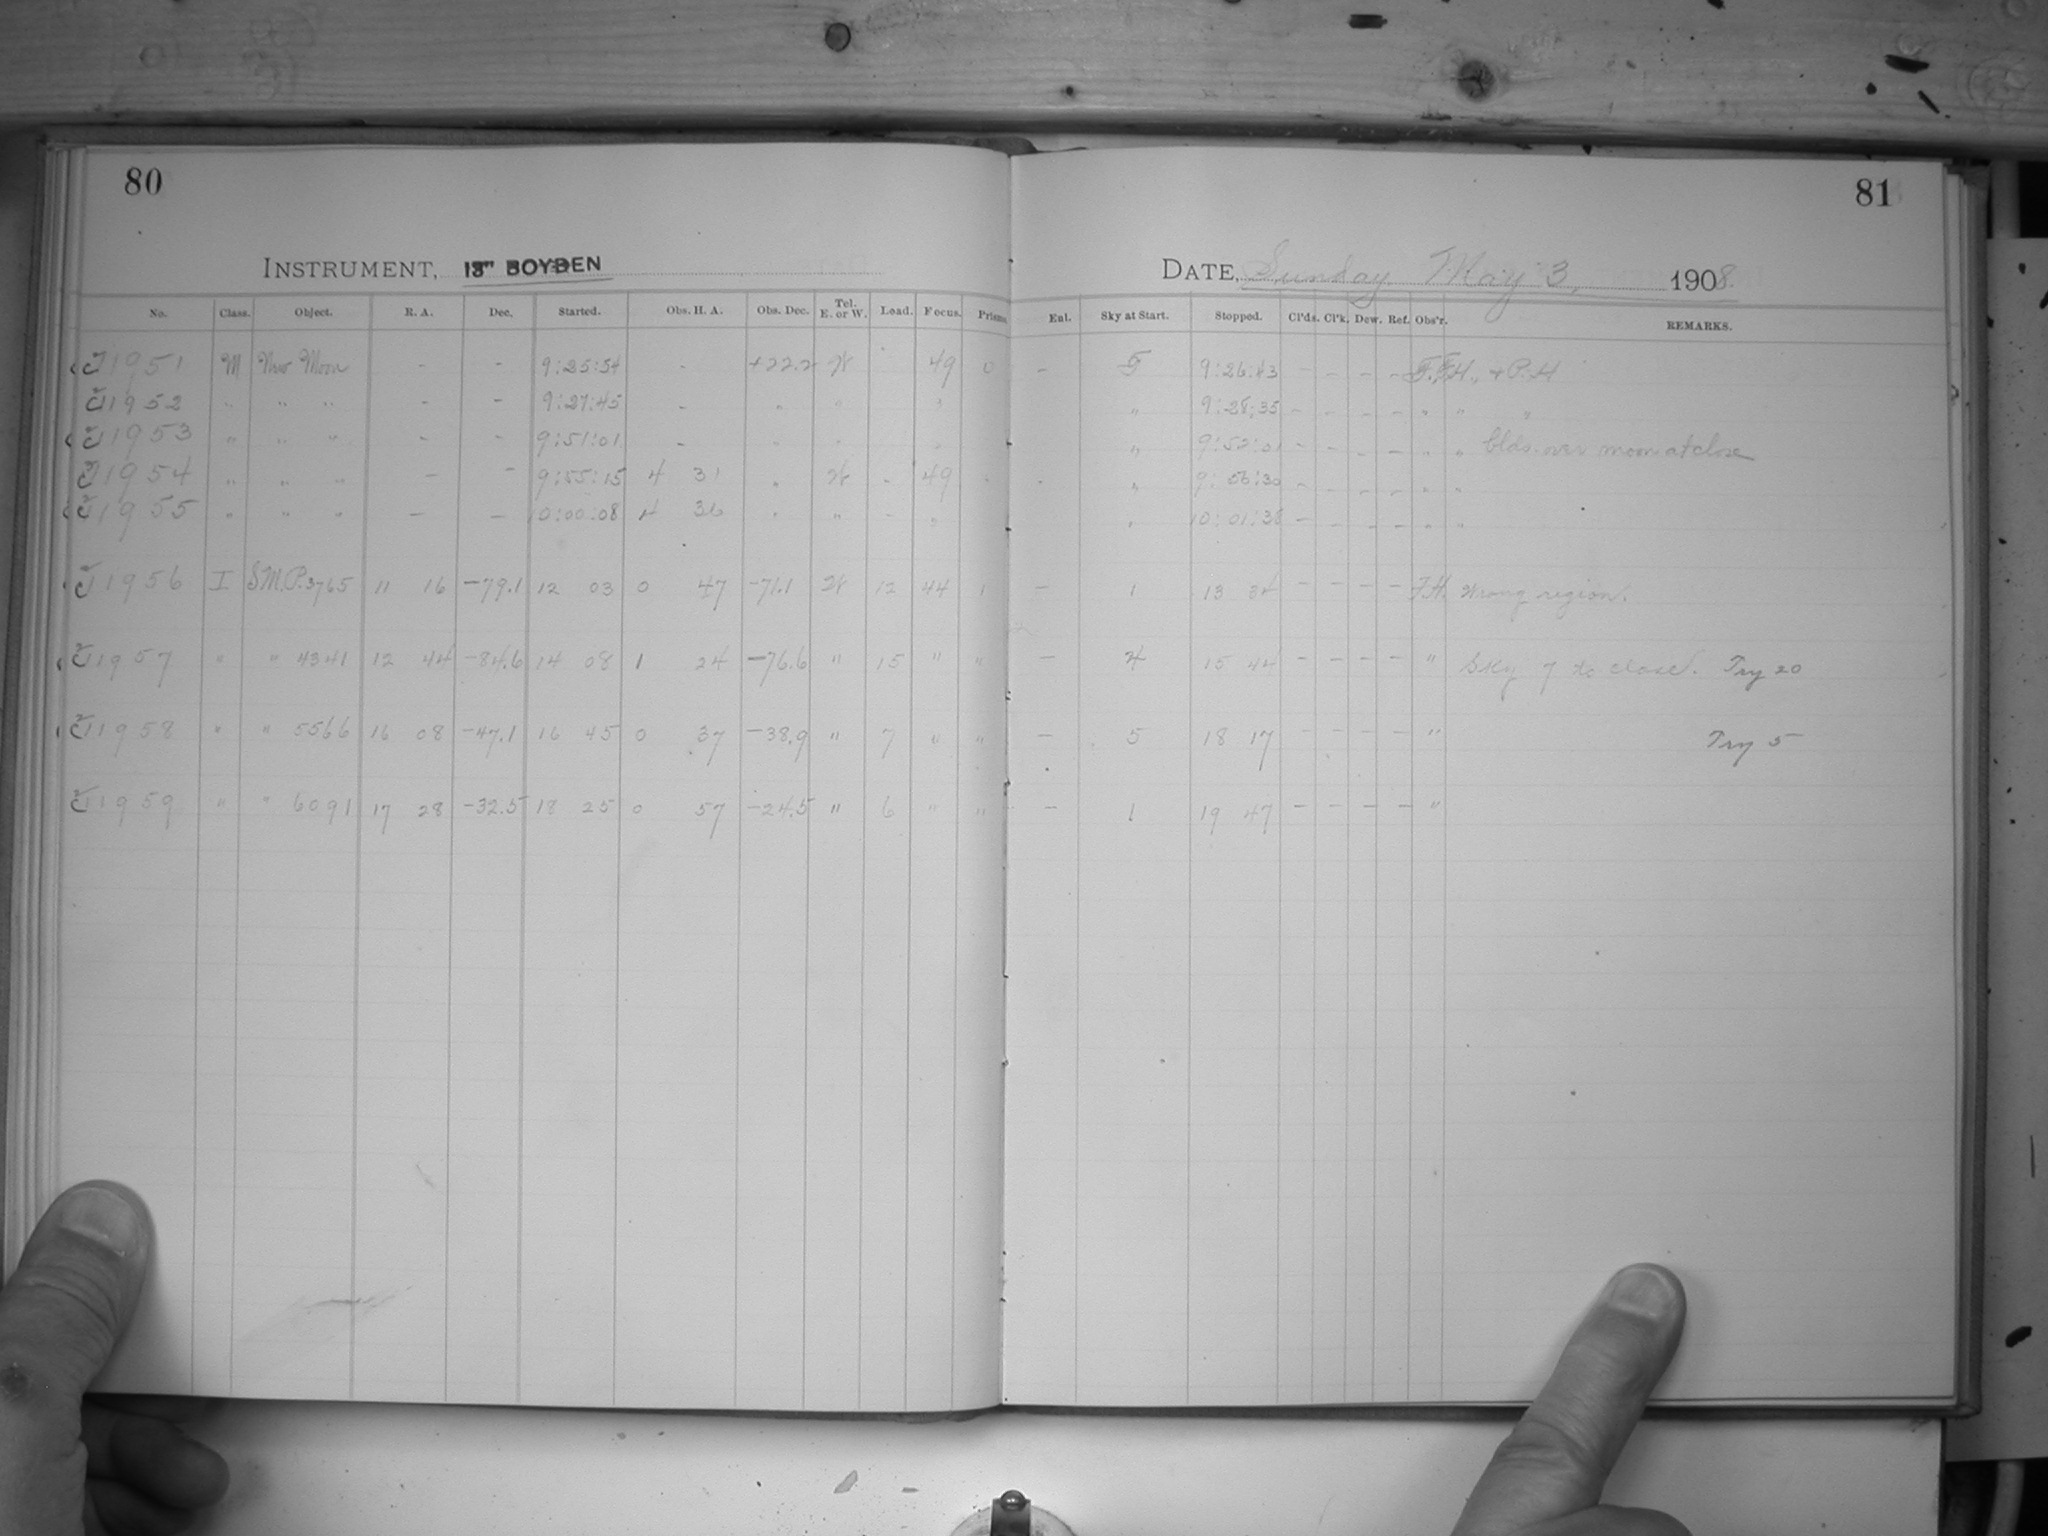 80
81
INSTRUMENT, 13" BOYDEN
DATE, Sunday May 3, 1908.
No. Class. Object. R. A. Dec. Started. Obs. H. A. Obs. Dec. Tel. E. or W. Load. Focus. Prisms Enl. Sky at Start. Stopped. Cl'ds. Cl'k. Dew. Ref. Obs'r. REMARKS.
11951 M New Moon - - 9:25:54 - +22.2 W 49 0 - 5 9:26:43 - - - - F.H., & P.H
11952 " " " - - 9:27:45 - " " " " 9:28:35 - - - - " " "
11953 " " " - - 9:51:01 - " " " " 9:52:01 - - - - " " Clds. over moon at close
11954 " " " - - 9:55:15 4 31 " W - 49 - - " 9:56:30 - - - - " "
11955 " " " - - 10:00:08 4 36 " " - " " 10:01:38 - - - - " "
11956 I S.M.P. 3765 11 16 -79.1 12 03 0 47 -71.1 W 12 44 1 - 1 13 34 - - - - F.H. Wrong region.
11957 " " 4341 12 44 -84.6 14 08 1 24 -76.6 " 15 " " - 4 15 44 - - - - " Sky 7 to close. Try 20
11958 " " 5566 16 08 -47.1 16 45 0 37 -38.9 " 7 " " - 5 18 17 - - - - " Try 5
11959 " " 6091 17 28 -32.5 18 25 0 57 -24.5 " 6 " " - 1 19 47 - - - - "